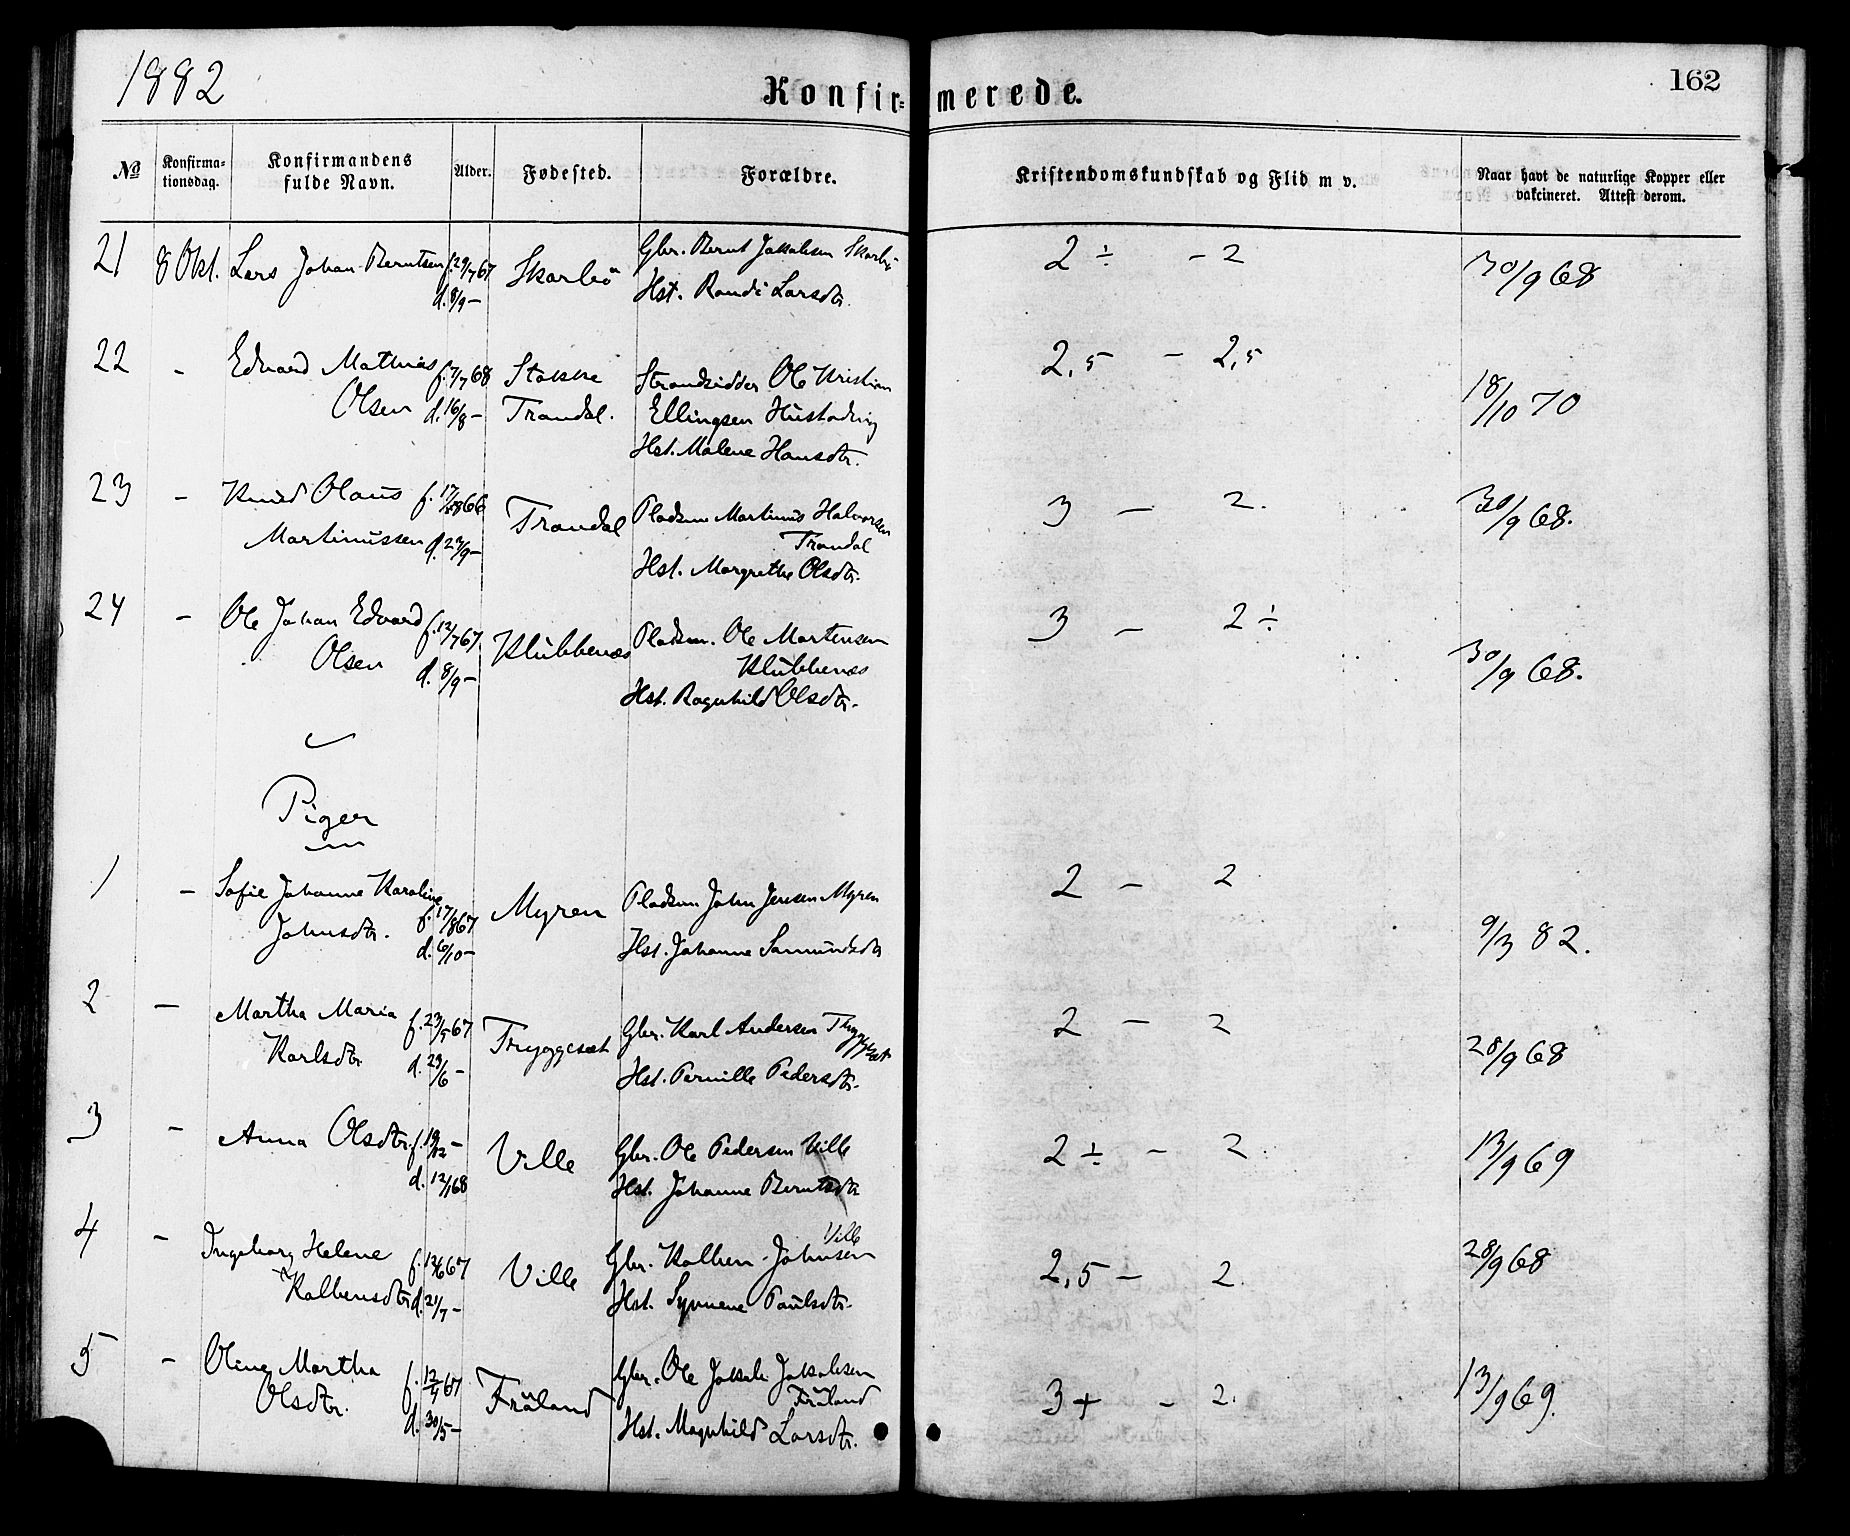 1882
Konfir= merede.
162
No Konfirma-tionsdag. Konfirmandens fulde Navn. Alder. Fødested. Forældre. Kristendomskundskab og Flid m v. Naar havt de naturlige Kopper eller vakcineret. Attest derom.
21 8 Okt. Lars Johan Berntsen f. 29/7 67 Skarbö Gbr. Bernt Jakobsen Skarbö 2 ÷ - 2 30/9 68
d. 8/9 - Hst. Randi Larsdtr.
22 - Edvard Mathias f. 7/7 68 Stokke Strandsidder Ole Kristian 2,5 - 2,5 18/10 70
Olsen d. 16/8 - Trandal. Ellingsen Hustadvig
Hst. Malene Hansdtr.
23 - Knud Olaus f. 17/8 66 Trandal Pladsm Martinus Halvorsen 3 - 2. 30/9 68.
Martinussen d. 23/9 - Trandal
Hst. Margrethe Olsdtr.
24 - Ole Johan Edvard f. 12/7 67. Klubbenæs Pladsm. Ole Mortensen 3 - 2 ÷ 30/9 68.
Olsen d. 8/9 - Klubbenæs
Hst. Ragnhild Olsdtr.
Piger
1 - Sofie Johanne Karoline f. 17/8 67 Myren Pladsm John Jensen Myren 2 - 2 9/3 82.
Johnsdtr. d. 6/10 - Hst. Johanne Samundsdtr
2 - Martha Maria f. 23/5 67 Tryggesæt Gbr. Karl Andersen Tryggesæt 2 - 2 28/9 68
Karlsdtr d. 23/6 - Hst. Pernille Pedersdtr.
3 - Anna Olsdtr. f. 19/12 - Ville Gbr. Ole Pedersen Ville 2 ÷ - 2. 13/9 69
d. 12/1 68 Hst. Johanne Berntsdtr
4 - Ingeborg Helene f. 12/6 67 Ville Gbr. Kolben Johnsen Ville 2,5 - 2. 28/9 68
Kolbensdtr d. 21/7 - Hst. Synnene Paulsdtr.
5 - Oline Martha f. 12/4 67 Fräland Gbr. Ole Jakob Jakobsen 3 + - 2. 13/9 69.
Olsdtr. d. 30/5 - Fräland
Hst. Magnhild Larsdtr.